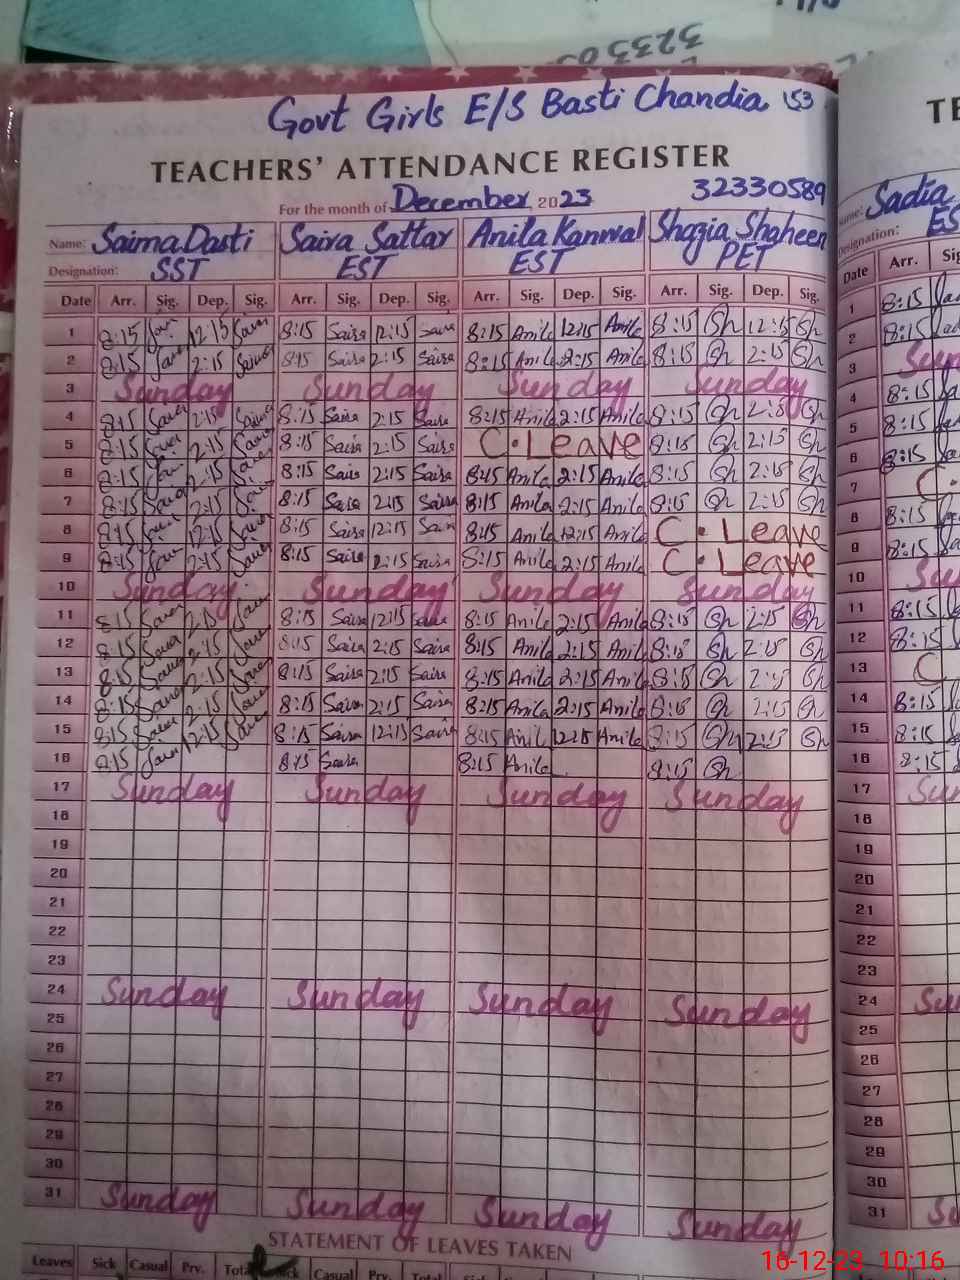 Govt Girls E/S Basti Chandia 153
TEACHERS' ATTENDANCE REGISTER
For the month of December 2023 32330589
Name: Saima Dasti Saira Sattar Anila Kanwal Shazia Shaheen Name: Sadia
Designation: SST EST EST PET Designation:
Date Arr. Sig. Dep. Sig. Arr. Sig. Dep. Sig. Arr. Sig. Dep. Sig. Arr. Sig. Dep. Sig. Date Arr.
1 8:15 12:15 8:15 Saira 12:15 Saira 8:15 Anila 12:15 Anila 8:15 Sh 12:15 Sh 1 8:15
2 8:15 2:15 8:15 Saira 2:15 Saira 8:15 Anila 2:15 Anila 8:15 Sh 2:15 Sh 2 8:15
3 Sunday Sunday Sunday Sunday 3
4 8:15 2:15 8:15 Saira 2:15 Saira 8:15 Anila 2:15 Anila 8:15 Sh 2:15 Sh 4 8:15
5 8:15 2:15 8:15 Saira 2:15 Saira C. Leave 8:15 Sh 2:15 Sh 5 8:15
6 8:15 2:15 8:15 Saira 2:15 Saira 8:15 Anila 2:15 Anila 8:15 Sh 2:15 Sh 6 8:15
7 8:15 2:15 8:15 Saira 2:15 Saira 8:15 Anila 2:15 Anila 8:15 Sh 2:15 Sh 7 C.
8 8:15 12:15 8:15 Saira 12:15 Saira 8:15 Anila 12:15 Anila C. Leave 8 8:15
9 8:15 2:15 8:15 Saira 2:15 Saira 8:15 Anila 2:15 Anila C. Leave 9 8:15
10 Sunday Sunday Sunday Sunday 10
11 8:15 2:15 8:15 Saira 12:15 Saira 8:15 Anila 2:15 Anila 8:15 Sh 2:15 Sh 11 8:15
12 8:15 2:15 8:15 Saira 2:15 Saira 8:15 Anila 2:15 Anila 8:15 Sh 2:15 Sh 12 8:15
13 8:15 2:15 8:15 Saira 2:15 Saira 8:15 Anila 2:15 Anila 8:15 Sh 2:15 Sh 13 C
14 8:15 2:15 8:15 Saira 2:15 Saira 8:15 Anila 2:15 Anila 8:15 Sh 2:15 Sh 14 8:15
15 8:15 12:15 8:15 Saira 12:15 Saira 8:15 Anila 12:15 Anila 8:15 Sh 2:15 Sh 15 8:15
16 8:15 8:15 Saira 8:15 Anila 8:15 Sh 16 8:15
17 Sunday Sunday Sunday Sunday 17
18 18
19 19
20 20
21 21
22 22
23 23
24 Sunday Sunday Sunday Sunday 24
25 25
26 26
27 27
28 28
29 29
30 30
31 Sunday Sunday Sunday Sunday 31
STATEMENT OF LEAVES TAKEN
Leaves Sick Casual Prv. Total Sick Casual Prv. Total Sick Casual Prv. Total
16-12-23 10:16